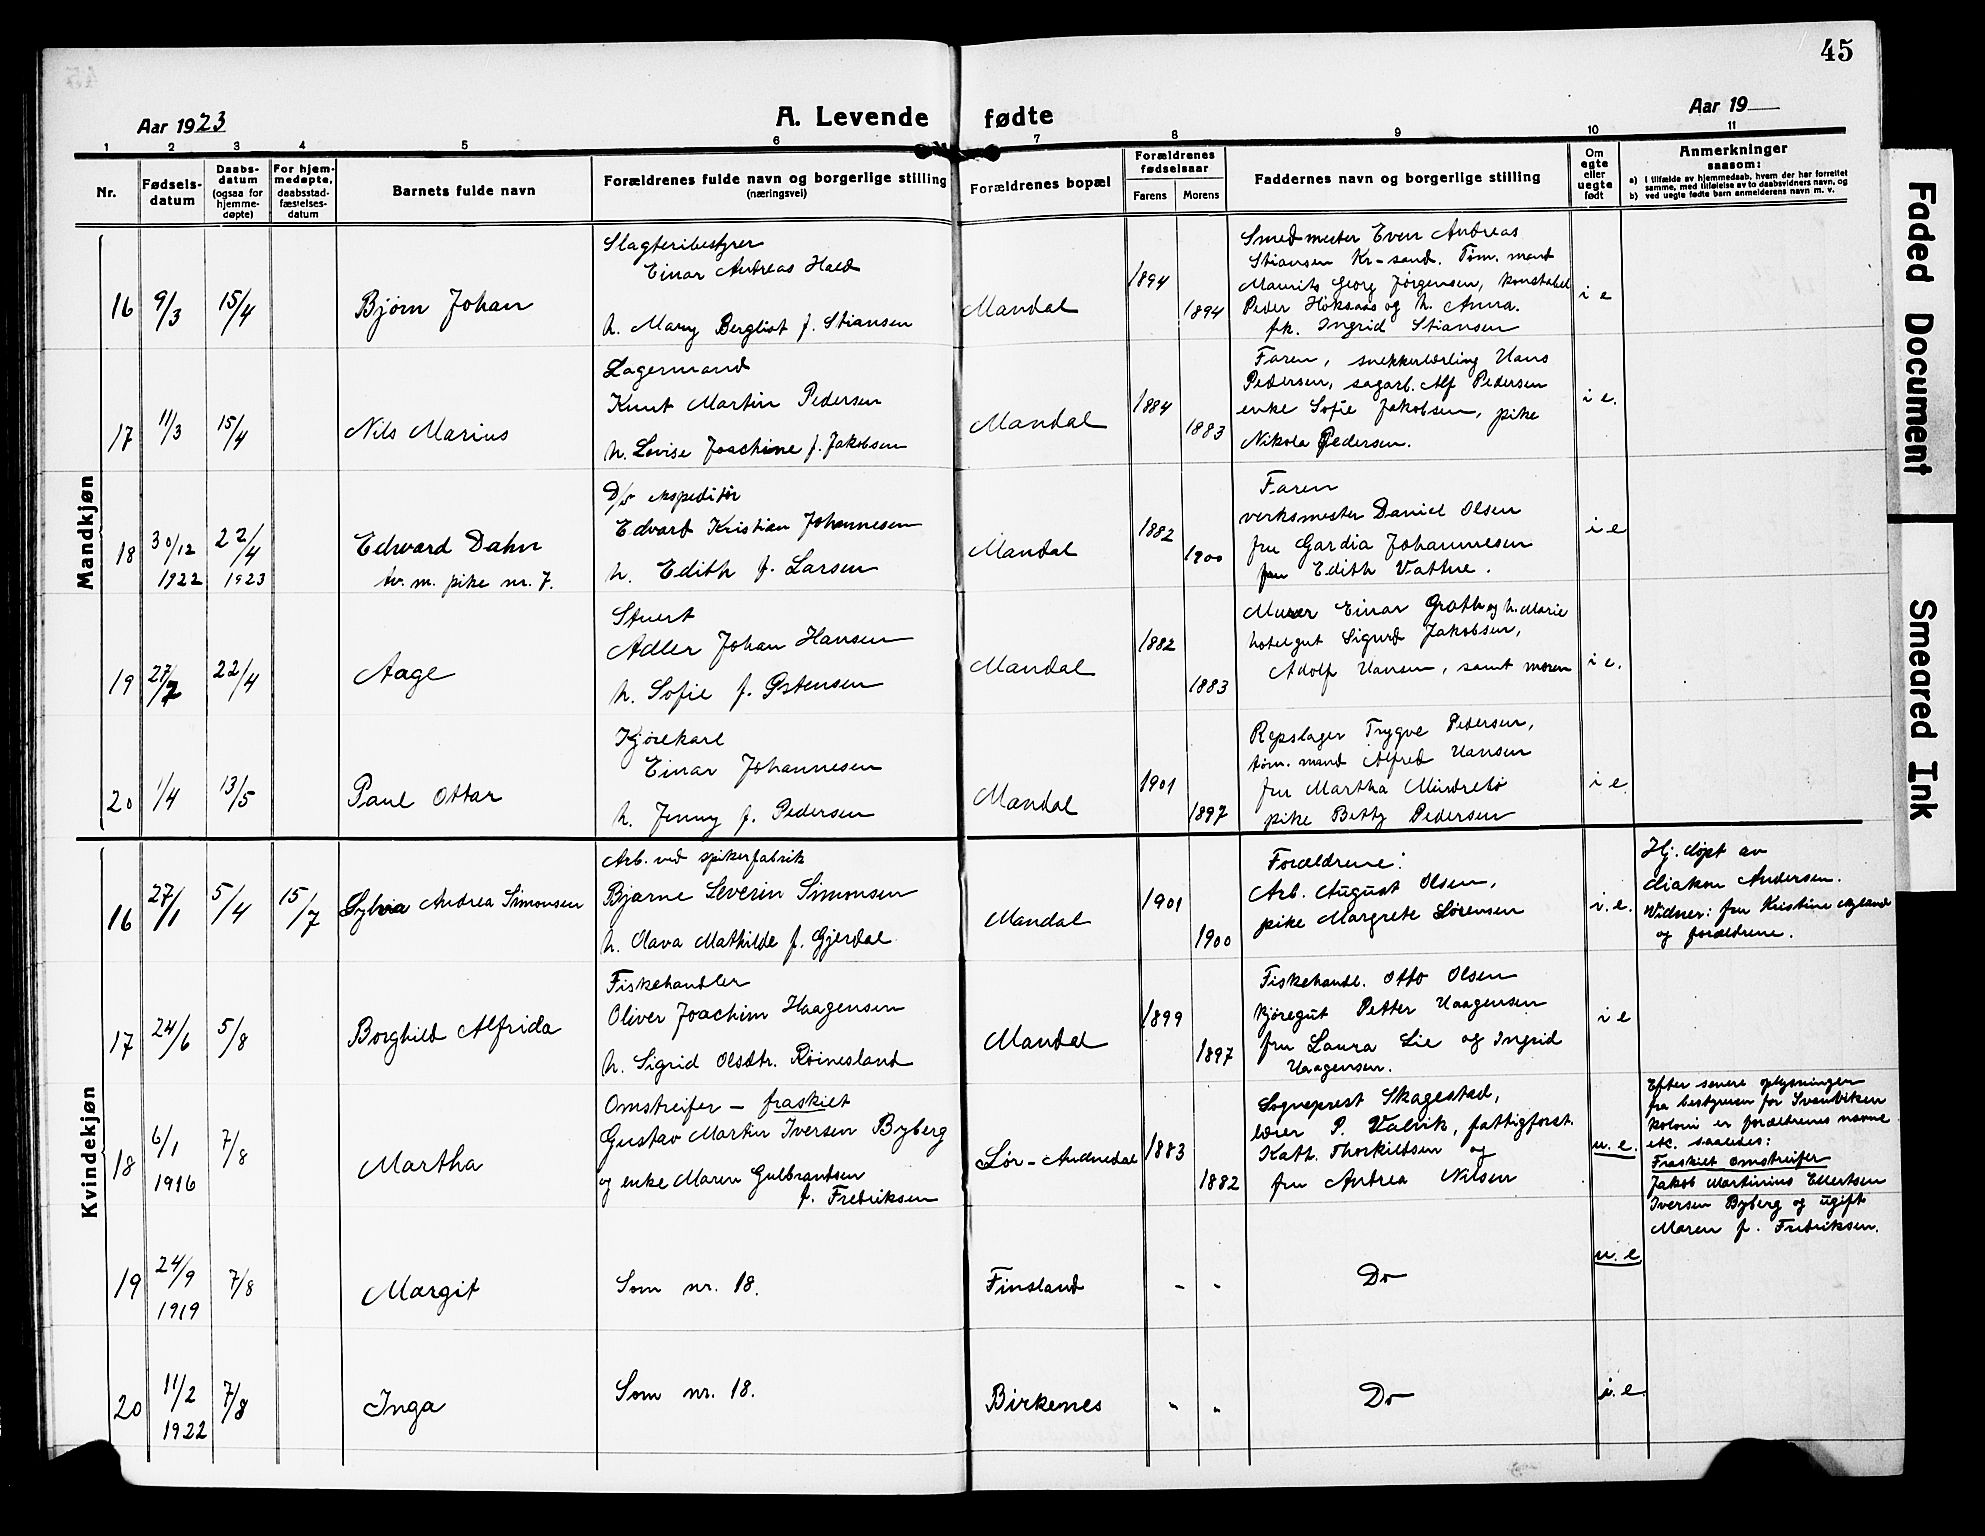 45
Aar 1923
A. Levende fødte
Aar 19
1 2 3 4 5 6 7 8 9 10 11
Nr.
Fødsels-
datum
Daabs-
datum
(ogsaa for
hjemme-
døpte)
For hjem-
medøpte,
daabsstad-
fæstelses-
datum
Barnets fulde navn
Forældrenes fulde navn og borgerlige stilling
(næringsvei)
Forældrenes bopæl
Forældrenes
fødselsaar
Farens Morens
Faddernes navn og borgerlige stilling
Om
egte
eller
uegte
født
Anmerkninger
saasom:
a) I tilfælde av hjemmedaab, hvem der har forrettet
samme, med tilføielse av to daabsvidners navn, og
b) ved uegte fødte barn anmelderens navn m. v.
Mandkjøn
16 9/3 15/4
Bjørn Johan
Slagteribestyrer
Einar Andreas Hald
h. Mary Bergliot f. Stiansen
Mandal
1894
1894
Smedmester Even Andreas
Stiansen Kr-sand. Tøm. mand
Maurits Georg Jørgensen, konstabel
Peder Höksaas og h. Anna.
frk. Ingrid Stiansen
i e
17 11/3 15/4
Nils Marius
Lagermand
Knut Martin Pedersen
h. Lovise Joachine f. Jakobsen
Mandal
1884
1883
Faren, snekkerlærling Hans
Pedersen, sagarb. Alf Pedersen
enke Sofie Jakobsen, pike
Nikola Pedersen.
i e.
18 30/12 1922 22/4 1923
Edward Dahn
tv. m. pike nr. 7.
D/s ekspeditør
Edvard Kristian Johannesen
h. Edith f. Larsen
Mandal
1882
1900
Faren
verksmester Daniel Olsen
fru Gardia Johannesen
fru Edith Vatne.
i e
19 27/2 22/4
Aage
Stuert
Adler Johan Hansen
h. Sofie f. Østensen
Mandal
1882
1883
Murer Einar Groth og h. Marie
hotelgut Sigurd Jakobsen,
Adolf Hansen, samt moren
i e.
20 1/4 13/5
Paul Ottar
Kjørekarl
Einar Johannesen
h. Jenny f. Pedersen
Mandal
1901
1897
Repslager Trygve Pedersen,
tøm. mand Alfred Hansen
fru Martha Mindrebö
pike Betty Pedersen
i e.
Kvindekjøn
16 27/1 5/4 15/7
Sylvia Andrea Simonsen
Arb. ved spikerfabrik
Bjarne Severin Simonsen
h. Olava Mathilde f. Gjerdal
Mandal
1901
1900
Forældrene:
Arb. August Olsen,
pike Margrete Sørensen
i. e.
Hj. døpt av
diakon Andersen.
Vidner: fru Kristine Nyland
og forældrene.
17 24/6 5/8
Borghild Alfrida
Fiskehandler
Oliver Joachim Haagensen
h. Sigrid Olsdtr. Røinesland
Mandal
1899
1897
Fiskehandl. Otto Olsen
kjøregut Petter Haagensen
fru Laura Lie og Ingrid
Haagensen.
i e
18 6/1 1916 7/8
Martha
Omstreifer – fraskilt
Gustav Martin Iversen Byberg
og enke Maren Gulbrandsen
f. Fredriksen
Sør-Audnedal
1883
1882
Sogneprest Skagestad,
lærer P. Valvik, fattigforst.
Kath. Thorkildsen og
fru Andrea Nilsen
u. e.
Efter senere oplysninger
fra bestyreren for Svanviken
koloni er forældrenes navne
etc. saaledes:
Fraskilt omstreifer
Jakob Martinius Ellertsen
Iversen Byberg og ugift
Maren f. Fredriksen.
19 24/9 1919 7/8
Margit
Som nr. 18.
Finsland
" "
Do
u. e
20 11/2 1922 7/8
Inga
Som nr. 18.
Birkenes
" "
Do
i. e
Faded Document
Smeared Ink